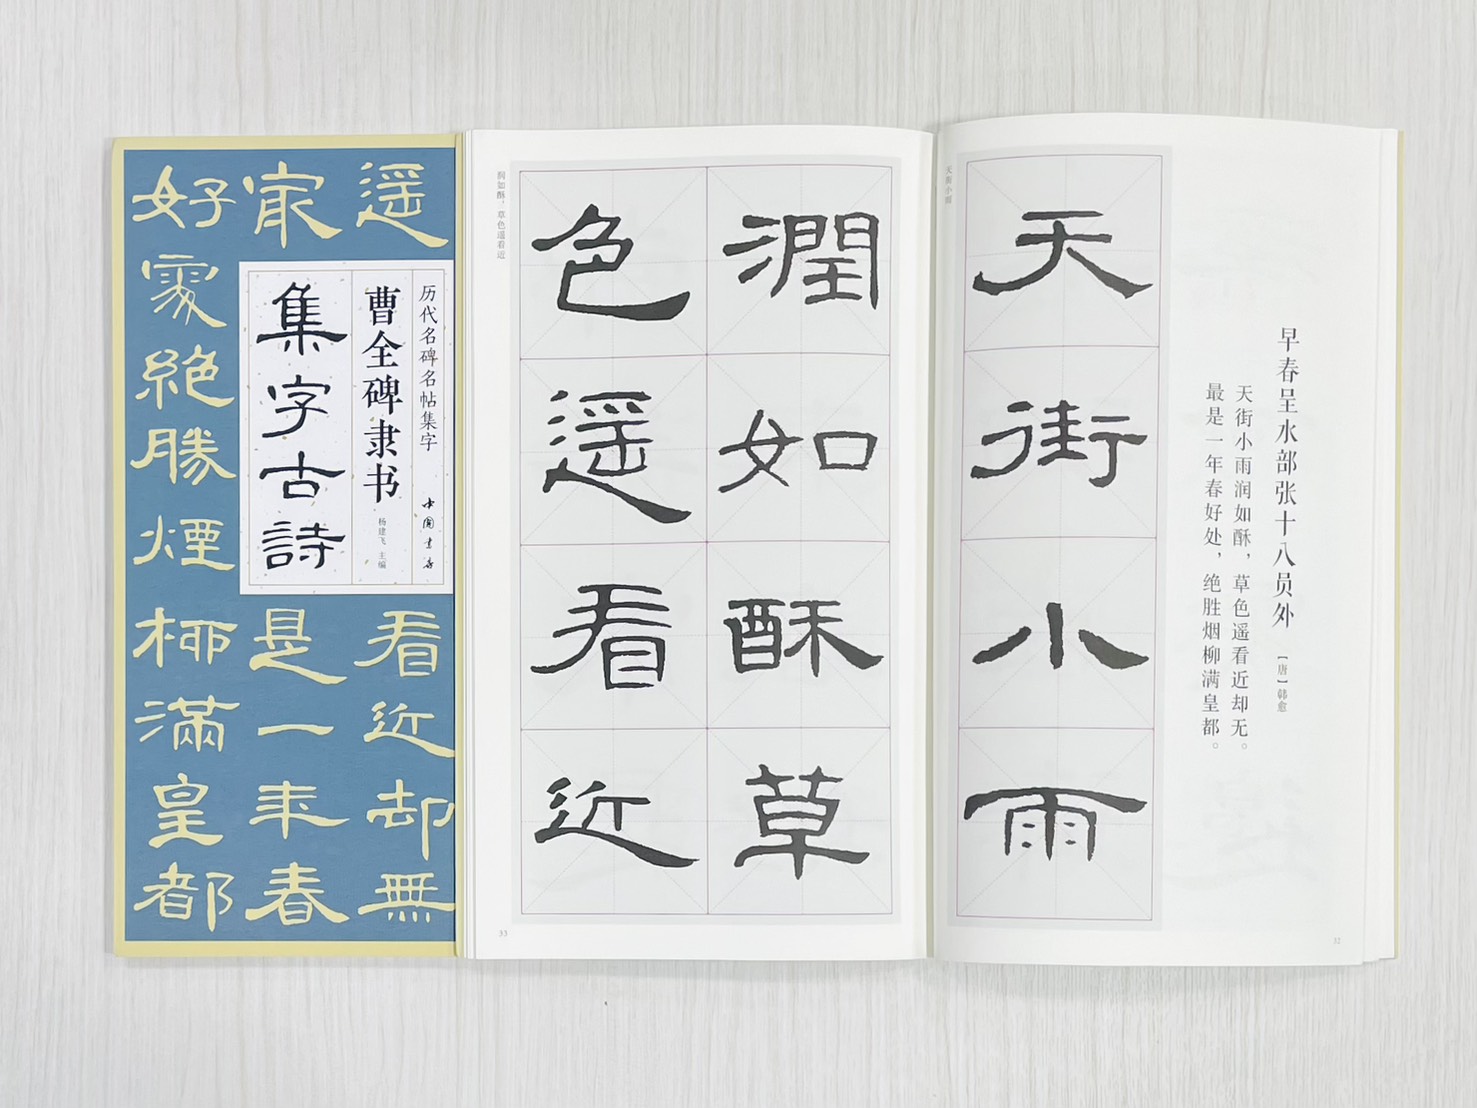 历代名碑名帖集字
中国书店
曹全碑隶书
杨建飞 主编
集字古詩
遥看近却無
冣是一年春
好處絕勝煙柳滿皇都
早春呈水部张十八员外
[唐] 韩愈
天街小雨润如酥，草色遥看近却无。
最是一年春好处，绝胜烟柳满皇都。
32
天街小雨
天街小雨
潤如酥草
色遥看近
润如酥，草色遥看近
33